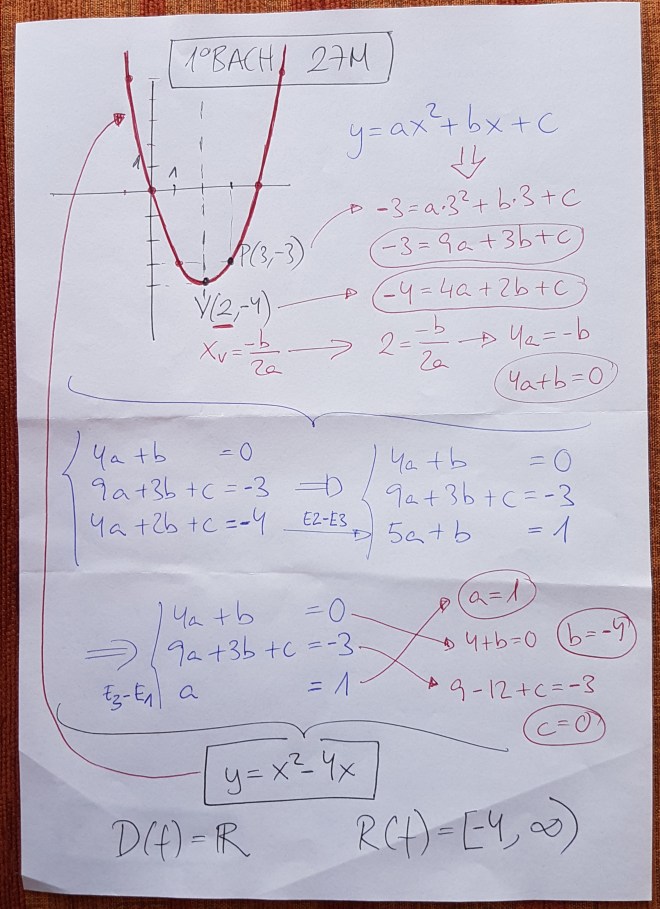 1ºBACH 27M
y=ax²+bx+c
⇓
1
1
-3=a·3²+b·3+c
P(3,-3)
-3=9a+3b+c
V(2,-4)
-4=4a+2b+c
Xv=-b/2a → 2=-b/2a → 4a=-b
4a+b=0
4a+b =0
9a+3b+c=-3
4a+2b+c=-4
⇒
E2-E3
4a+b =0
9a+3b+c=-3
5a+b =1
⇒
E3-E1
4a+b =0
9a+3b+c=-3
a =1
a=1
4+b=0 b=-4
9-12+c=-3
c=0
y=x²-4x
D(f)=ℝ R(f)=[-4,∞)